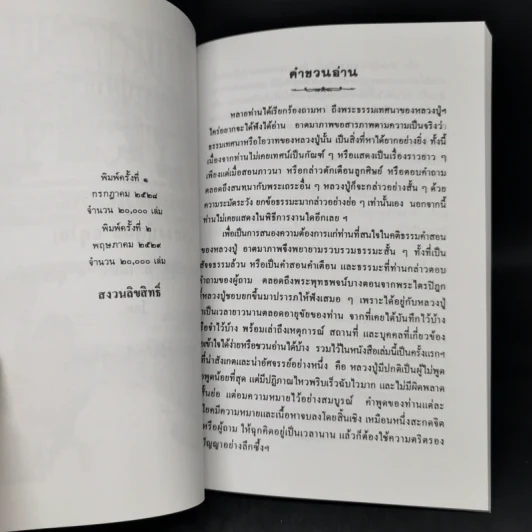 พิมพ์ครั้งที่ ๑
กรกฎาคม ๒๕๒๘
จำนวน ๒๐,๐๐๐ เล่ม
พิมพ์ครั้งที่ ๒
พฤษภาคม ๒๕๒๙
จำนวน ๒๐,๐๐๐ เล่ม
สงวนลิขสิทธิ์
คำชวนอ่าน
หลายท่านได้เรียกร้องถามหา ถึงพระธรรมเทศนาของหลวงปู่ฯ
ใคร่อยากจะได้ฟังได้อ่าน อาตมาภาพขอสารภาพตามความเป็นจริงว่า
ธรรมเทศนาหรือโอวาทของหลวงปู่นั้น เป็นสิ่งที่หาได้ยากอย่างยิ่ง ทั้งนี้
เนื่องจากท่านไม่เคยเทศน์เป็นกัณฑ์ ๆ หรือแสดงเป็นเรื่องราวยาว ๆ
เพียงแต่เมื่อสอนภาวนา หรือกล่าวตักเตือนลูกศิษย์ หรือตอบคำถาม
ตลอดถึงสนทนากับพระเถระอื่น ๆ หลวงปู่ก็จะกล่าวอย่างสั้น ๆ ด้วย
ความระมัดระวัง ยกข้อธรรมะมากล่าวอย่างย่อ ๆ เท่านั้นเอง นอกจากนี้
ท่านไม่เคยแสดงในพิธีการงานใดอีกเลย ฯ
เพื่อเป็นการสนองความต้องการแก่ท่านที่สนใจในคติธรรมคำสอน
ของหลวงปู่ อาตมาภาพจึงพยายามรวบรวมธรรมะสั้น ๆ ทั้งที่เป็น
สัจจธรรมล้วน หรือเป็นคำสอนคำเตือน และธรรมะที่ท่านกล่าวตอบ
คำถามของผู้ถาม ตลอดถึงพระพุทธพจน์บางตอนจากพระไตรปิฎก
ที่หลวงปู่ชอบยกขึ้นมาปรารภให้ฟังเสมอ ๆ เพราะได้อยู่กับหลวงปู่
เป็นเวลายาวนานตลอดอายุขัยของท่าน จากที่เคยได้บันทึกไว้บ้าง
จำไว้บ้าง พร้อมเล่าถึงเหตุการณ์ สถานที่ และบุคคลที่เกี่ยวข้อง
เข้าใจได้ง่ายหรือชวนอ่านได้บ้าง รวมไว้ในหนังสือเล่มนี้เป็นครั้งแรกฯ
ที่น่าสังเกตและน่าอัศจรรย์อย่างหนึ่ง คือ หลวงปู่มีปกติเป็นผู้ไม่พูด
พูดน้อยที่สุด แต่มีปฏิภาณไหวพริบเร็วฉับไวมาก และไม่มีผิดพลาด
สั้นย่อ แต่อมความหมายไว้อย่างสมบูรณ์ คำพูดของท่านแต่ละ
มีความหมายและเนื้อหาจบลงโดยสิ้นเชิง เหมือนหนึ่งสะกดจิต
หรือผู้ถาม ให้ฉุกคิดอยู่เป็นเวลานาน แล้วก็ต้องใช้ความตริตรอง
ปัญญาอย่างลึกซึ้งฯ